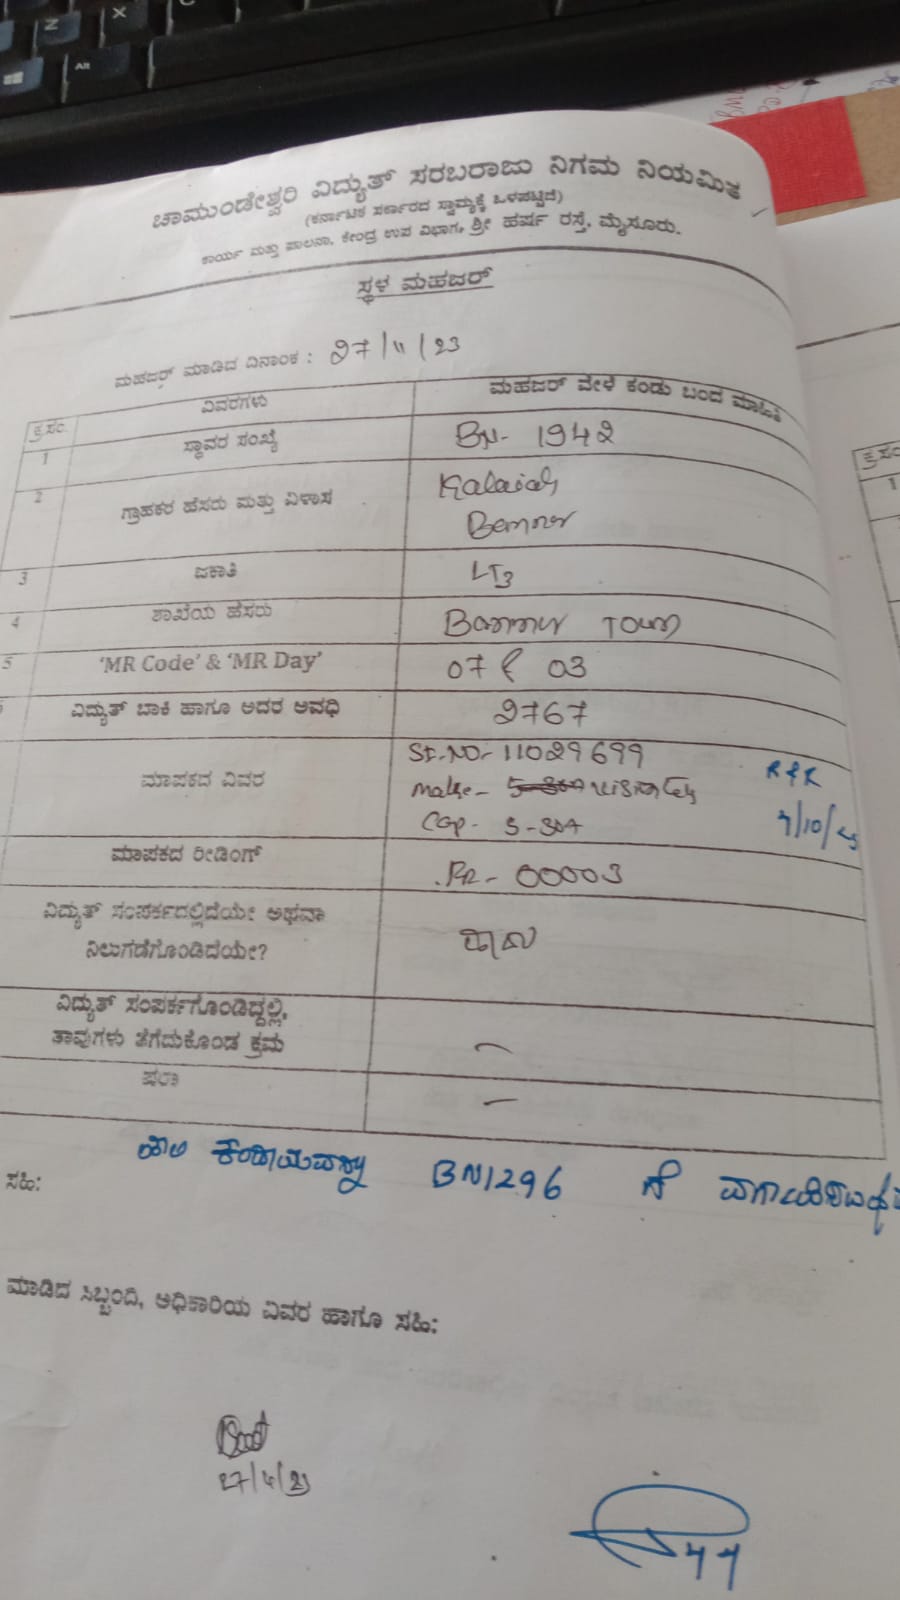 ಚಾಮುಂಡೇಶ್ವರಿ ವಿದ್ಯುತ್ ಸರಬರಾಜು ನಿಗಮ ನಿಯಮಿತ
(ಕರ್ನಾಟಕ ಸರ್ಕಾರದ ಸ್ವಾಮ್ಯಕ್ಕೆ ಒಳಪಟ್ಟಿದೆ)
ಕಾರ್ಯ ಮತ್ತು ಪಾಲನಾ, ಕೇಂದ್ರ ಉಪ ವಿಭಾಗ, ಶ್ರೀ ಹರ್ಷ ರಸ್ತೆ, ಮೈಸೂರು.
ಸ್ಥಳ ಮಹಜರ್
ಮಹಜರ್ ಮಾಡಿದ ದಿನಾಂಕ : 27/11/23
ಕ್ರ.ಸಂ. ವಿವರಗಳು ಮಹಜರ್ ವೇಳೆ ಕಂಡು ಬಂದ ಮಾಹಿತಿ
1 ಸ್ಥಾವರ ಸಂಖ್ಯೆ BN- 1942
2 ಗ್ರಾಹಕರ ಹೆಸರು ಮತ್ತು ವಿಳಾಸ Kalaiah
3 ಜಕಾತಿ LT3
4 ಶಾಖೆಯ ಹೆಸರು Bannur TOWN
5 'MR Code' & 'MR Day' 07 & 03
ವಿದ್ಯುತ್ ಬಾಕಿ ಹಾಗೂ ಅದರ ಅವಧಿ 2767
ಮಾಪಕದ ವಿವರ Sl.NO- 11029699
Make-
CAP- 5-30A
R & R
ಮಾಪಕದ ರೀಡಿಂಗ್ FR- 00003
ವಿದ್ಯುತ್ ಸಂಪರ್ಕದಲ್ಲಿದೆಯೇ ಅಥವಾ
ನಿಲುಗಡೆಗೊಂಡಿದೆಯೇ?
ವಿದ್ಯುತ್ ಸಂಪರ್ಕಗೊಂಡಿದ್ದಲ್ಲಿ,
ತಾವುಗಳು ತೆಗೆದುಕೊಂಡ ಕ್ರಮ
ಷರಾ
BN1296 ಗೆ
ಸಹಿ:
ಮಾಡಿದ ಸಿಬ್ಬಂದಿ, ಅಧಿಕಾರಿಯ ವಿವರ ಹಾಗೂ ಸಹಿ:
ಕ್ರ.ಸಂ
1
N
X
Alt